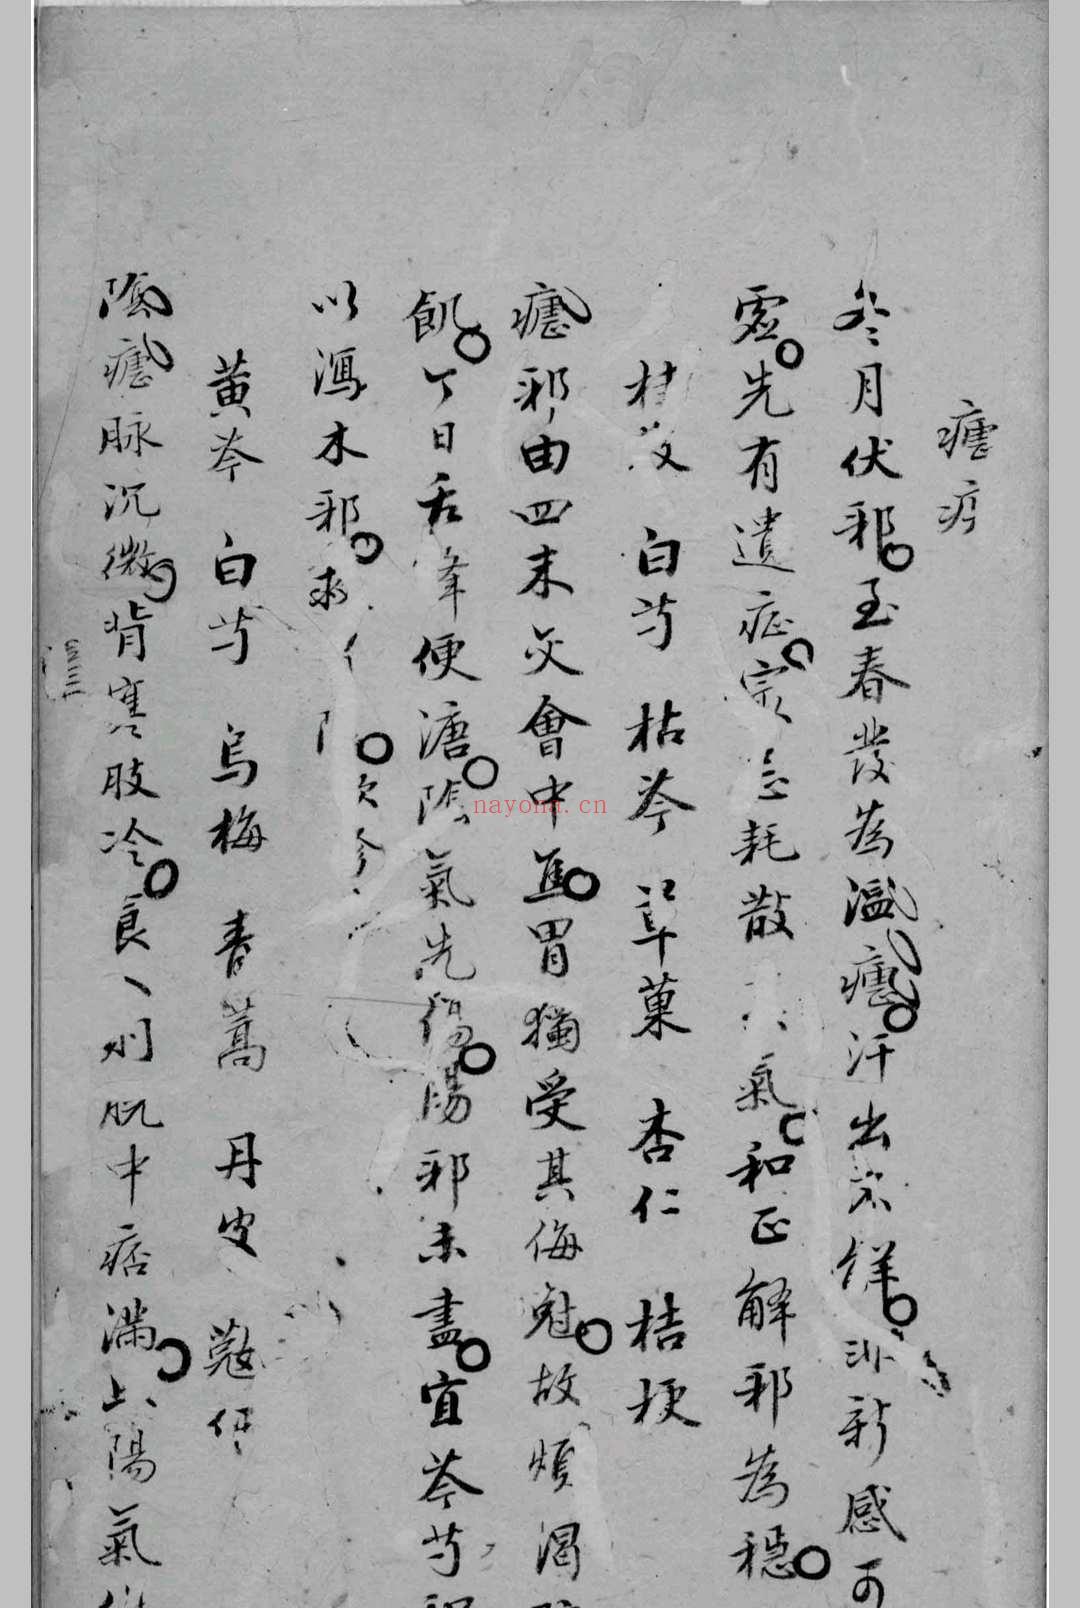 瘧疾
冬月伏邪至春發為溫瘧汗出不解非新感可
虛先有遺症宗忌耗散氣和正解邪為穩
桂枝 白芍 枯芩 草菓 杏仁 桔梗
瘧邪由四末交會中焦胃獨受其侮尅故煩渴
飢丁日舌絳便溏陰氣先傷陽邪未盡宜芩芍
以瀉木邪
黃芩 白芍 烏梅 青蒿 丹皮 蔻仁
陰瘧脉沉微背寒肢冷食丶則脘中痞滿此陽氣
nayona.cn